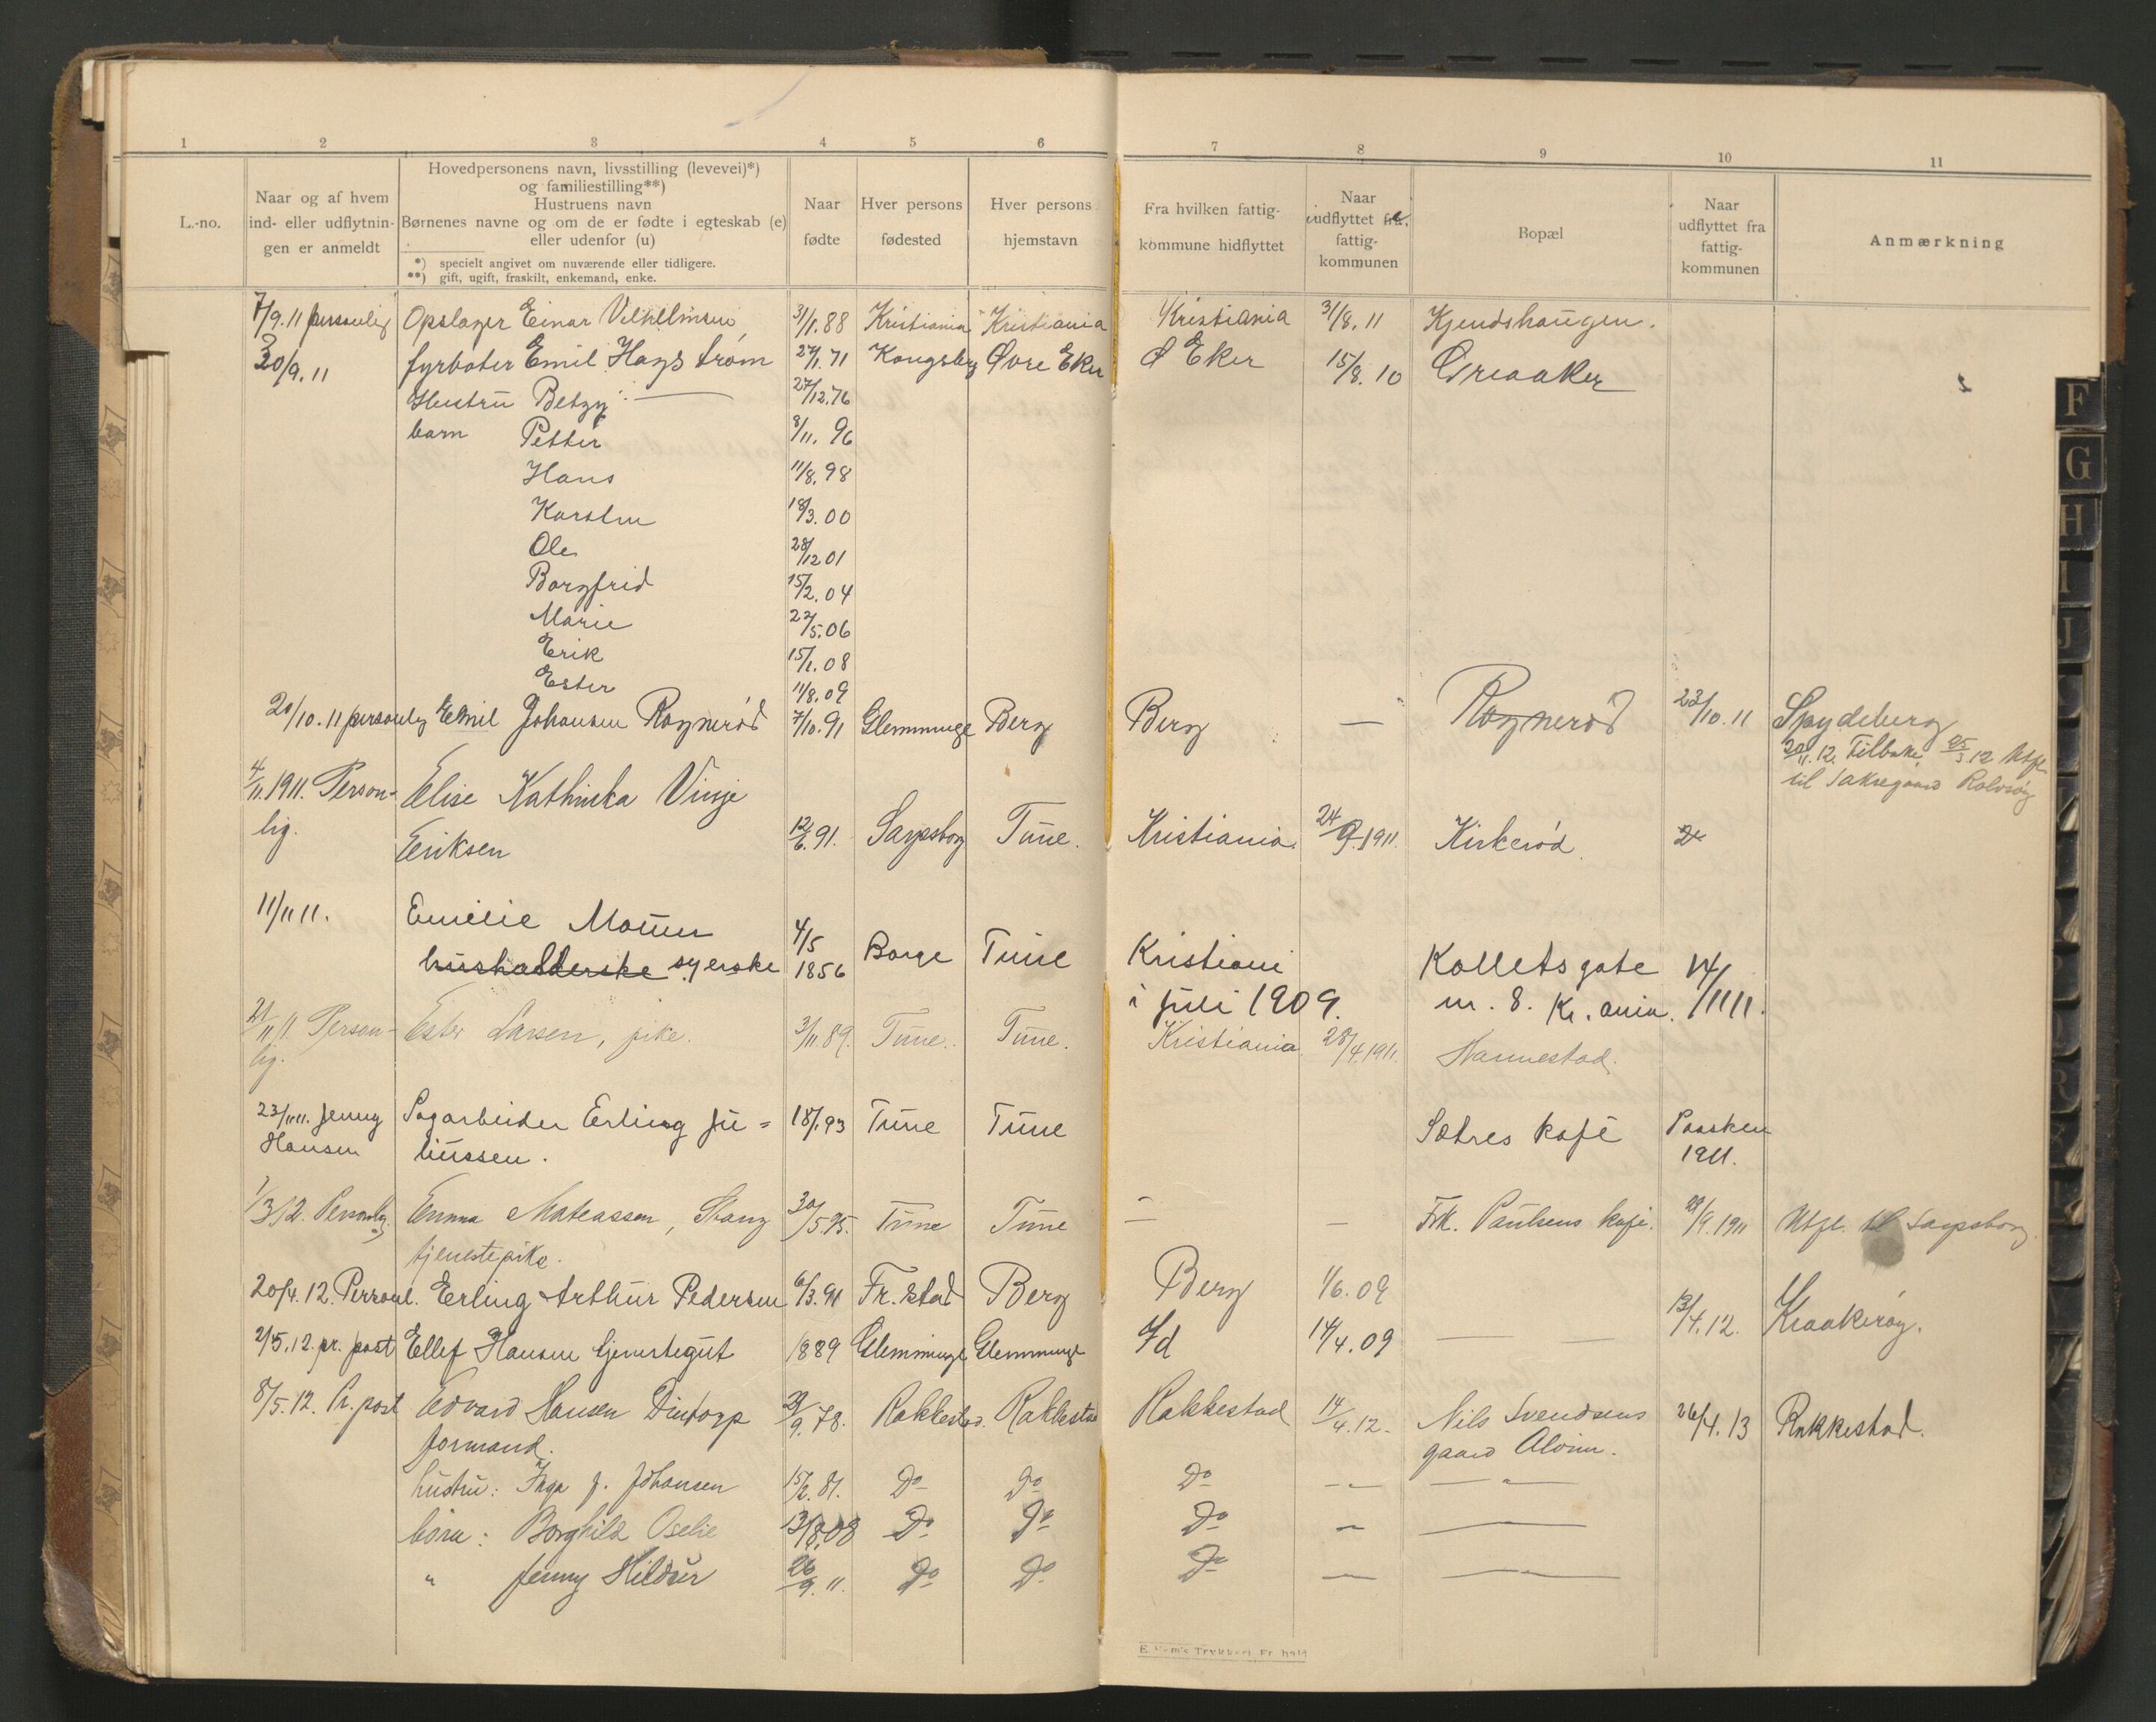 1 2 3 4 5 6 7 8 9 10 11
L.-no.
Naar og af hvem
ind- eller udflytnin-
gen er anmeldt
Hovedpersonens navn, livsstilling (levevei)*)
og familiestilling**)
Hustruens navn
Børnenes navne og om de er fødte i egteskab (e)
eller udenfor (u)
*) specielt angivet om nuværende eller tidligere.
**) gift, ugift, fraskilt, enkemand, enke.
Naar
fødte
Hver persons
fødested
Hver persons
hjemstavn
Fra hvilken fattig-
kommune hidflyttet
Naar
udflyttet
fattig-
kommunen
Bopæl
Naar
udflyttet fra
fattig-
kommunen
Anmærkning
7/9.11 personlig Opslager Einar Vilhelmsen 31/1.88 Kristiania Kristiania Kristiania 31/8.11 Kjendshaugen.
30/9.11 fyrbøter Emil Hagstrøm 27/1.71 Kongsberg Øvre Eker Ø Eker 15/8.10 Greaaker
Hustru Betzy 27/12.76
barn Petter 8/11.96
Hans 11/8.98
Karsten 18/3.00
Ole 28/12 01
Borgfrid 15/2.04
Marie 22/5.06
Erik 15/1.08
Ester 11/8.09
20/10.11 personlig Emil Johansen Rognerød 7/10.91 Glemminge Berg Berg — Rognerød 23/10.11 Spydeberg
20/11.12. Tilbake 25/3 12 Utfl.
til Taksegaard Rolvsøy
4/11.1911. Person- Elise Kathinka Vinje
lig. Eriksen 12/6.91. Sarpsborg Tune. Kristiania. 24/9.1911. Kirkerød.
11/11 11. Emilie Mouer 4/5
husholderske syerske 1856 Borge Tune Kristiani Kolletsgate 14/
i juli 1909. nr. 8. Kr.ania. /1111.
21/11.11. Person- Ester Larsen, pike. 3/11.89. Tune. Tune. Kristiania. 28/4.1911. Hannestad.
lig.
23/11 11. Jenny Sagarbeider Erling Ju= 18/1.93 Tune Tune Sætres kafé Paasken
Hansen liussen. 1911.
1/3 12. Personlig Emma Mateassen, Stang 30/5.95. Tune Tune — — Frk. Paulsens kafé. 29/9.1911 Utfl. til Sarpsborg.
tjenestepike.
20/4.12. Personl. Erling Arthur Pedersen 6/3.91 Fr.stad Berg Berg 1/6.09
2/5.12. pr. post Ellef Hansen tjenestegut 1889 Glemminge Glemminge Id 14/4.09 — — 13/4.12. Kraakerøy.
8/5.12. Pr. post Edvard Hansen Dintorp 29/9.78. Rakkestad. Rakkestad Rakkestad 14/4.12. Nils Svendsens 26/4.13 Rakkestad.
formand. gaard Alvim.
hustru: Inga J. Johansen 15/2.81. Do Do Do - - — " —
børn: Borghild Oselie 13/8.08 Do Do Do — —
" Jenny Hildur 26/9.11. Do Do Do — —
F
G
H
I
J
R